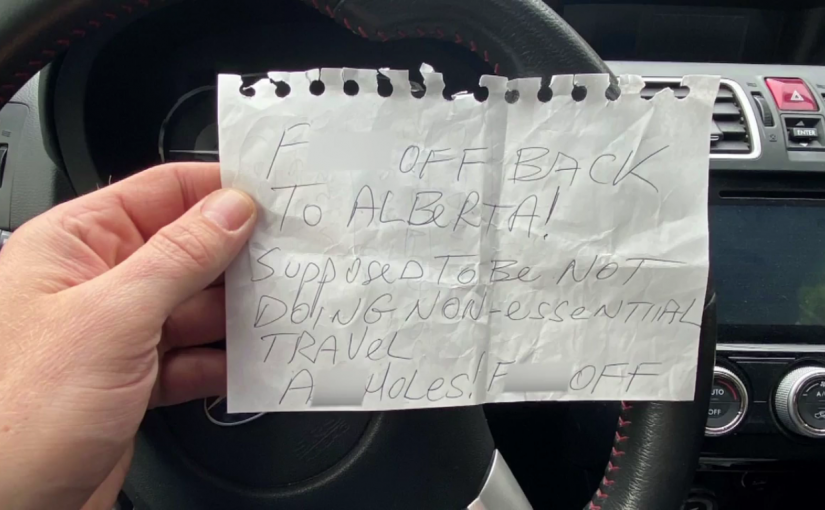 F OFF BACK
TO ALBERTA!
SUPPOSED TO BE NOT
DOING NON-ESSENTIAL
TRAVEL
A HOLES! F OFF
ENTER
AUTO
OFF